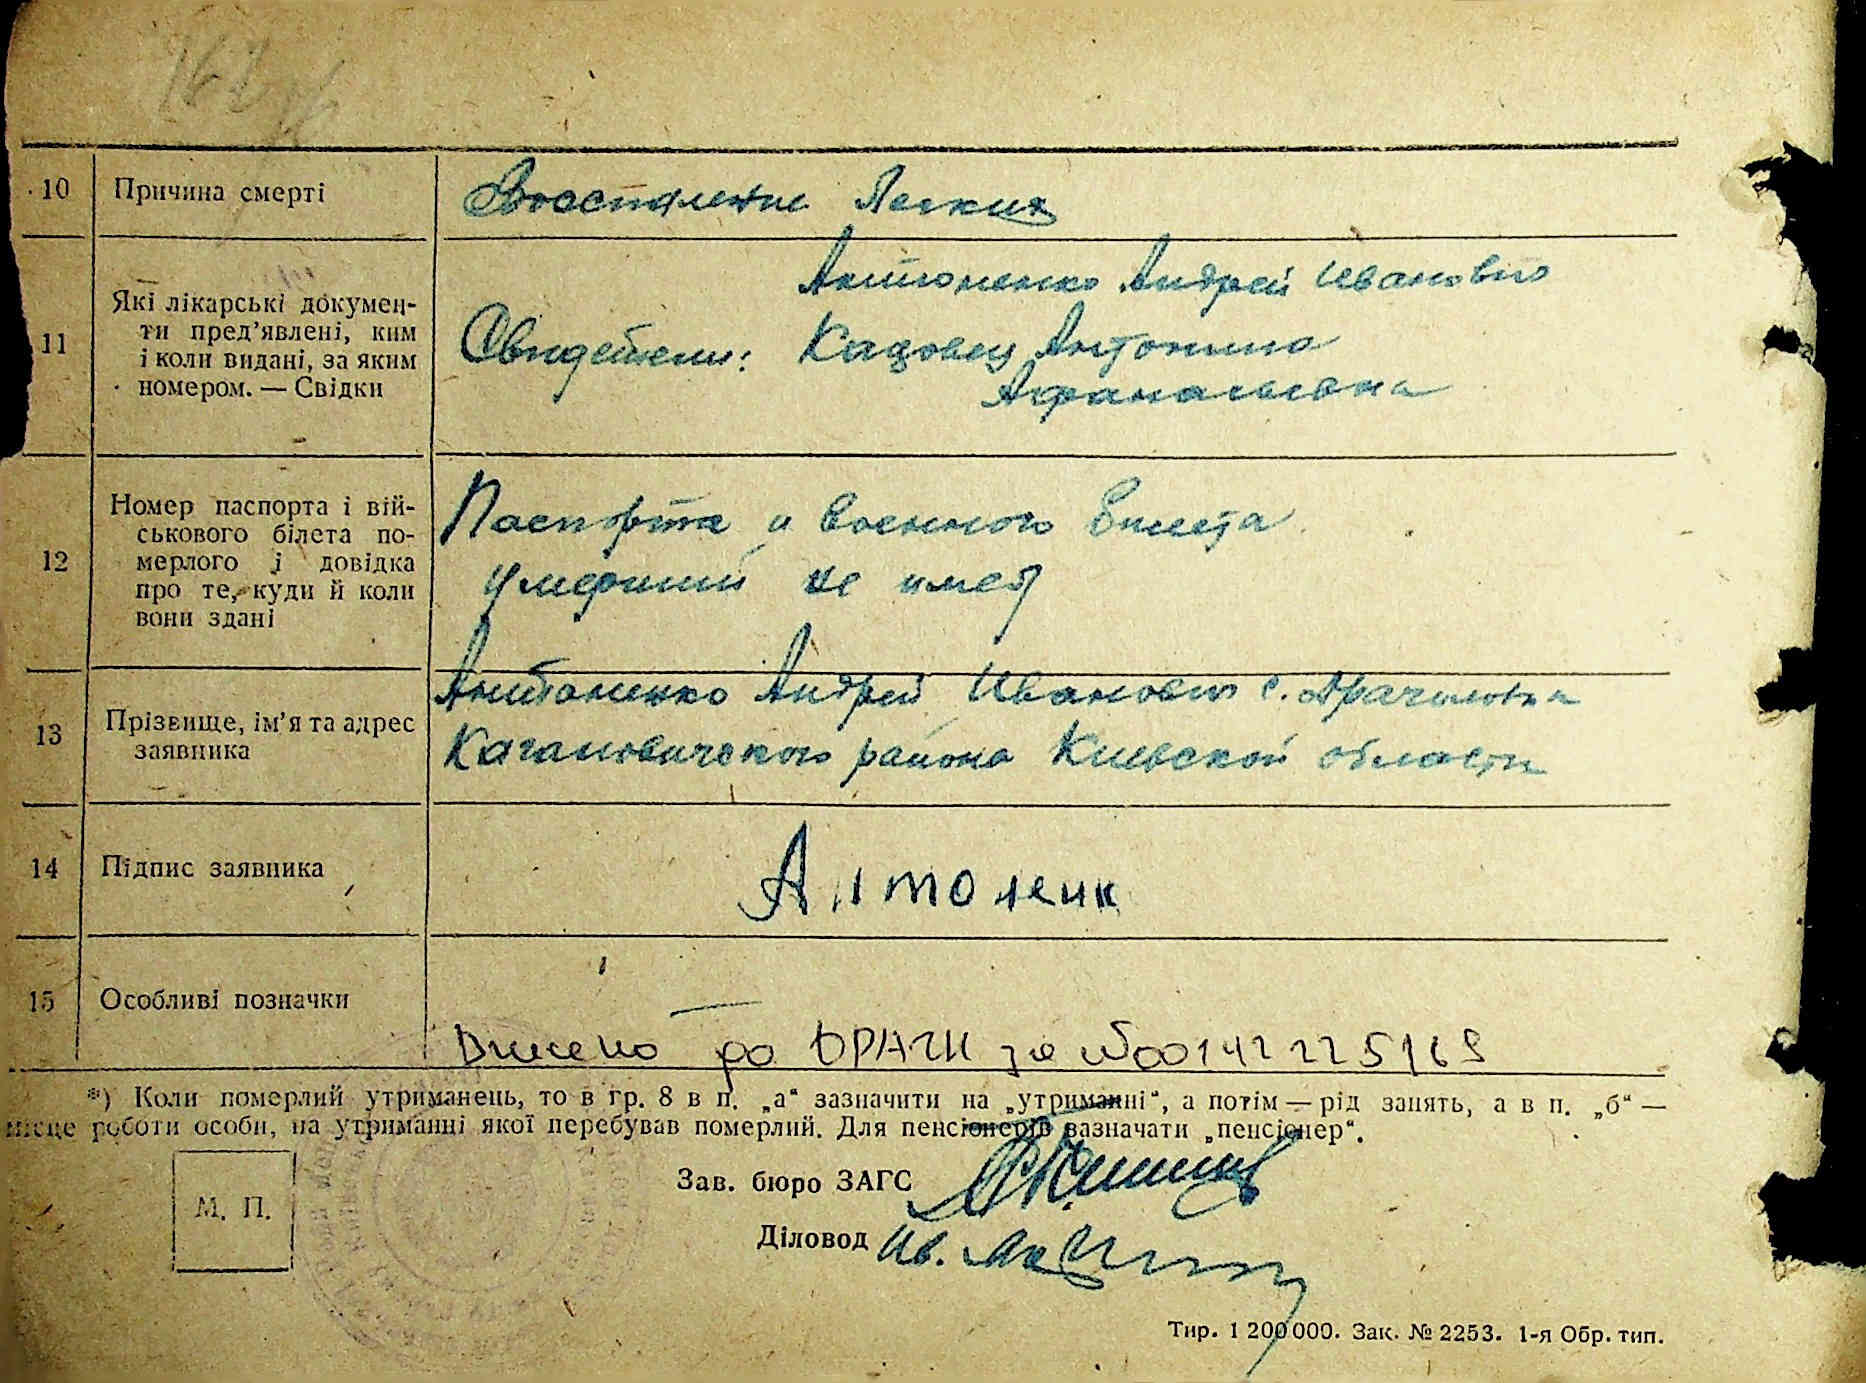 10 Причина смерті Воспаление Легких
Антоненко Андрей Иванович
11 Які лікарські докумен-
ти пред’явлені, ким
і коли видані, за яким
номером. — Свідки
Свидетели: Кацовец Антонина
Афанасьевна
12 Номер паспорта і вій-
ськового білета по-
мерлого і довідка
про те, куди й коли
вони здані
Паспорта и военного билета
умерший не имел
13 Прізвище, ім’я та адрес
заявника
Антоненко Андрей Иванович с.
Кагановичского района Киевской области
14 Підпис заявника Антоненк
15 Особливі позначки
Внесено до ДРАЦС за №00142225169
*) Коли померлий утриманець, то в гр. 8 в п. „а“ зазначити на „утриманні“, а потім — рід занять, а в п. „б“ —
місце роботи особи, на утриманні якої перебував померлий. Для пенсіонерів зазначати „пенсіонер“.
М. П.
Зав. бюро ЗАГС
Діловод
Тир. 1 200 000. Зак. № 2253. 1-я Обр. тип.